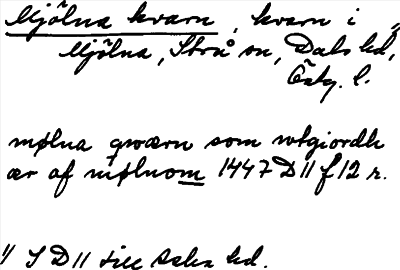 Mjölna kvarn, kvarn i "
Mjölna, Strå sn, Dals hd,
Östg. l.
mølna qwærn som wtgiordh
ær af mølnom 1447 D 11 f 12 r.
1/ I D 11 till Dals hd.